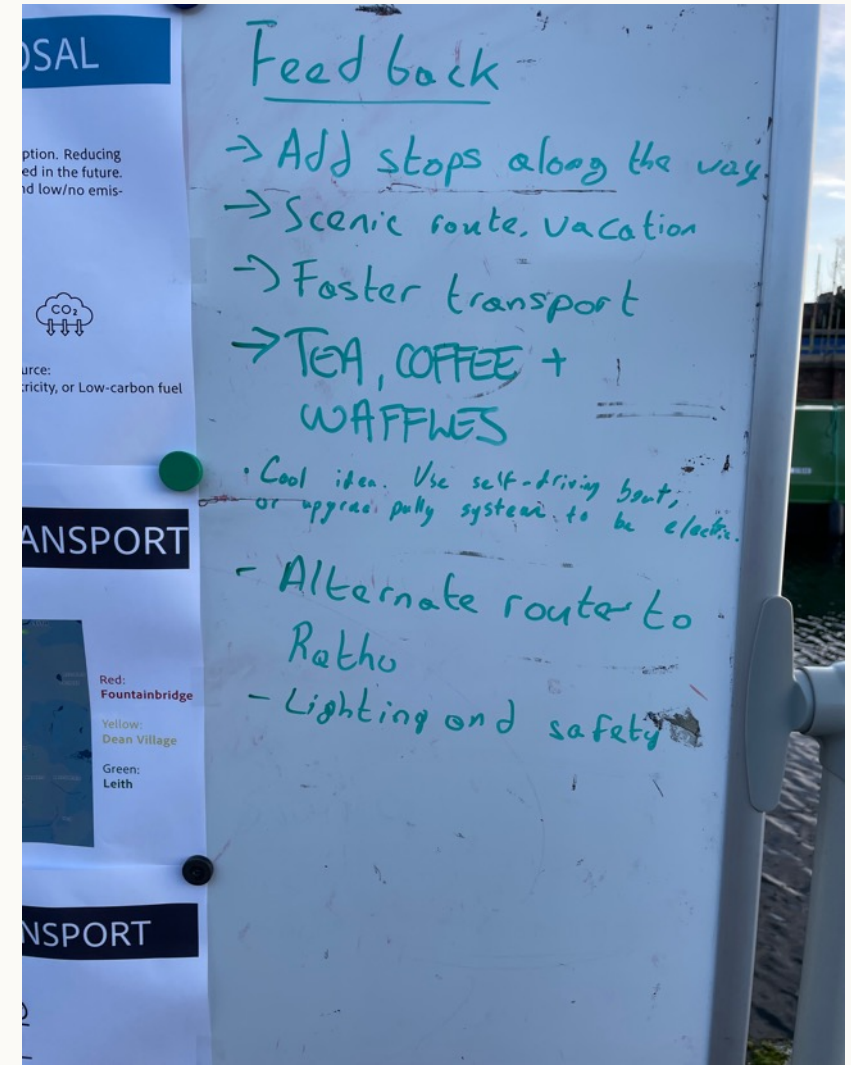 OSAL
ption. Reducing
ed in the future.
nd low/no emis-
CO₂
urce:
ricity, or Low-carbon fuel
ANSPORT
Red:
Fountainbridge
Yellow:
Dean Village
Green:
Leith
NSPORT
Feedback
→ Add stops along the way.
→ Scenic route, vacation
→ Faster transport
→ TEA, COFFEE +
WAFFLES
· Cool idea. Use self-driving boat,
or pully system to be electric.
- Alternate router to
Ratho
- Lighting and safety